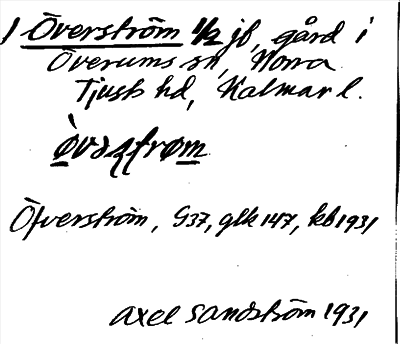 1 Överström 1/2 jf, gård i
Överums sn, Norra
Tjusts hd, Kalmar l.
Öfverström, G37, glk 147, kb 1931
Axel Sandström 1931